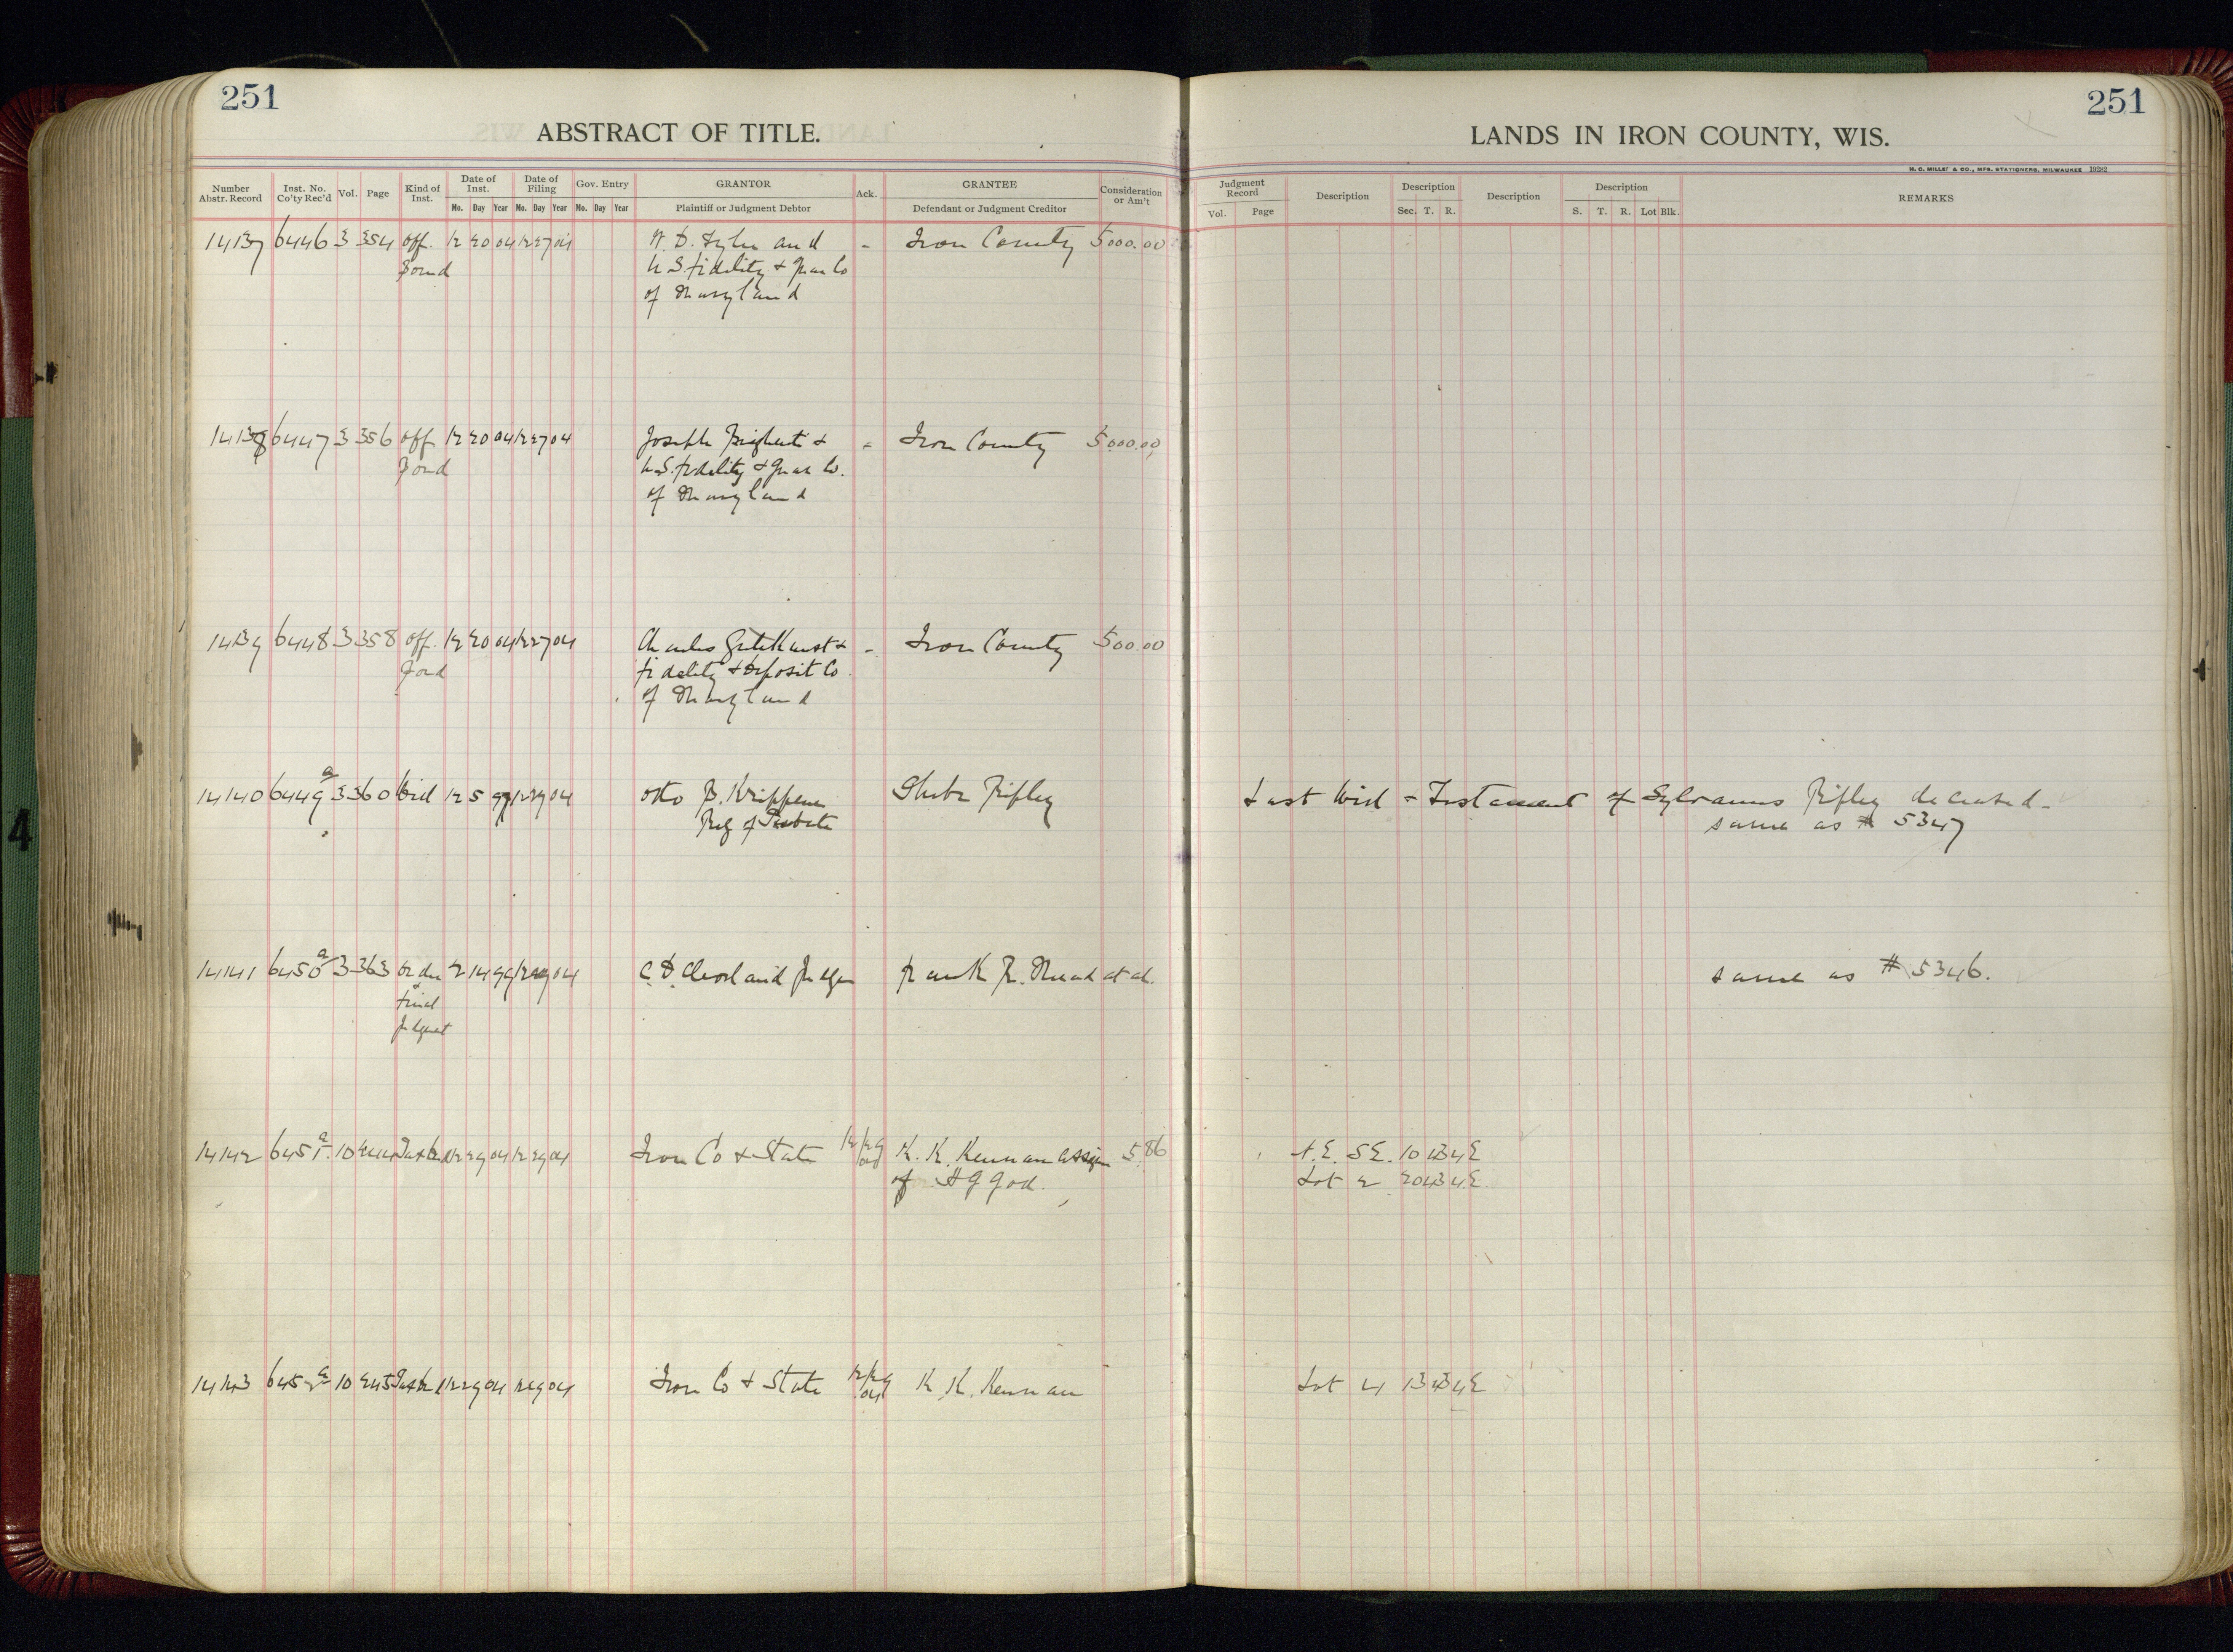 251
ABSTRACT OF TITLE.
Number Abstr. Record Inst. No. Co'ty Rec'd Vol. Page Kind of Inst. Date of Inst. Date of Filing Gov. Entry GRANTOR Ack. GRANTEE Consideration or Am't
Mo. Day Year Mo. Day Year Mo. Day Year Plaintiff or Judgment Debtor Defendant or Judgment Creditor
14137 6446 3 354 Off. 12 20 04 12 27 04 W. D. Tyler and - Iron County 5000.00
Bond U S Fidelity + Guar Co
of Maryland
14138 6447 3 356 Off 12 20 04 12 27 04 Joseph + - Iron County 5000.00
Bond U.S. Fidelity + Guar Co.
of Maryland
14139 6448 3 358 Off. 12 20 04 12 27 04 Charles + - Iron County 500.00
Bond Fidelity + Deposit Co
of Maryland
14140 6449 a 3 360 Will 12 5 97 12 29 04 Otto B. Krippene Ripley
Reg of Probate
14141 6450 a 3 363 Order 2 14 99 12 29 04 C. D. Cleveland Judge Frank R. et al.
+ Final
Judgmt
14142 6451 a 10 244 Tax Deed 12 29 04 12 29 04 Iron Co + State 12/29 04 K. K. Kennan assign 5.86
of H G
14143 6452 a 10 245 Tax Deed 12 29 04 12 29 04 Iron Co + State 12/29 04 K. K. Kennan
251
LANDS IN IRON COUNTY, WIS.
H. C. MILLER & CO., MFG. STATIONERS, MILWAUKEE 19282
Judgment Record Description Description Description Description REMARKS
Vol. Page Sec. T. R. S. T. R. Lot Blk.
Last Will + Testament of Sylvanus Ripley deceased -
same as # 5347
same as # 5346.
N.E. S.E. 10 43 4E
Lot 2 20 43 4E
Lot 4 13 43 4E